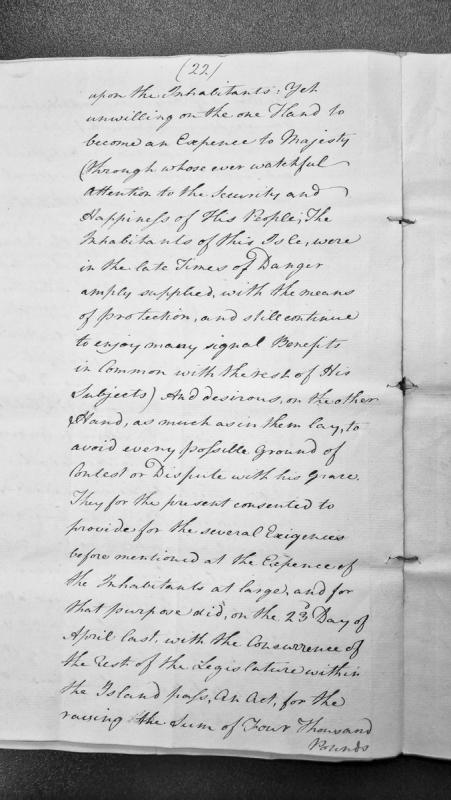 (22)
upon the Inhabitants; Yet
unwilling on the one Hand to
become an Expence to Majesty
(through whose ever watchful
Attention to the Security and
Happiness of His People, The
Inhabitants of this Isle, were
in the late Times of Danger
amply supplied, with the means
of protection, and still continue
to enjoy many signal Benefits
in Common with the rest of His
Subjects) And desirous, on the other
Hand, as much as in them lay, to
avoid every possible Ground of
Contest or Dispute with his Grace.
They for the present consented to
provide for the several Exigences
before mentioned at the Expence of
the Inhabitants at large, and for
that purpose did, on the 23d Day of
April last, with the Concurrence of
the rest of the Legislature within
the Island pass, An Act, for the
raising the Sum of Four Thousand
Pounds